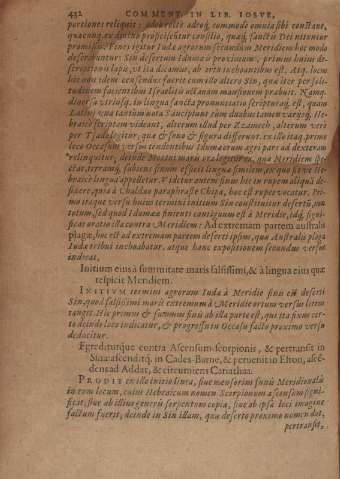 432 COMMENT. IN LIB. IOSVE,
portiones reliquit; ad commodè omnia sibi constant,
quacunque ex diuino proposito consilio, quaque sanctis Dei nituntur
promissis. Fines igitur Iuda agrorum secundum Meridiem hoc modo
describuntur: Sin desertum Idumæis proximum, primus huius de-
scriptionis lapis, vt ita dicamus, ab ortu inchoantibus est. Atq. locus
hic non idem censendus fuerit cum illo altero Sin, qua iter per soli-
tudinem facientibus Israëlitis octauam mansionem præbuit. Nam
diuersa vtriusq. in lingua sancta pronunciatio scripturaq. est, quam
Latini vna tantùm nota
braicè scriptam vidicant, alterum illud per
per Tsade legitur, quæ & sono & figura differunt. ex illo itaq. primo
loco Occasum versus tendentibus Idumæorum agri pars ad dexteram
relinquitur, deinde Mortui maris ora legitur ex, qua Meridiem spe-
ctat, terramq. subiens sinum efficit lingua similem, ex quo situ & He-
braicè lingua appellatur. Videtur autem sinus hic in rupem aliquā de-
sinere, quia à Chaldæo paraphraste Chepa, hoc est rupes vocatur. Pri-
mo itaque versu huius termini initium Sin constituitur desertū, non
totum, sed quod Idumææ finienti contiguum est à Meridie, idq. signi-
ficat oratio illa contra Meridiem: Ad extremam partem australis
plagæ, hoc est ad extremam partem deserti ipsius, qua Australis plaga
Iudæ tribus inchoabatur. atque hanc expositionem secundus versus
indicat.
Initium eius à summitate maris salsissimi, & à lingua eius quæ
respicit Meridiem.
INITIVM termini agrorum Iuda à Meridie sinus est deserti
Sin, quod salsissimi maris extremum à Meridie ortum versus littus
tangit. Hic primus & summus finis ab illa parte est, qui ita fixum cer-
to deinde loco indicatur, & progressus in Occasu facto proximo versu
deducitur.
Egrediturque contra Ascensum scorpionis, & pertransit in
Sina: ascenditq. in Cades-Barne, & peruenit in Esron, asce-
dens ad Addar, & circumiens Carcathaa.
PRODIT ex illo initio linea, siue mensurini funis Meridionalis
in eum locum, cuius Hebraicum nomen Scorpionum ascensum signi-
ficat, siue ab illius generis serpentum copia, siue ab ipsa loci imagine
factum fuerit, deinde in Sin illam, quæ deserto proximo nomen dat,
pertransit,